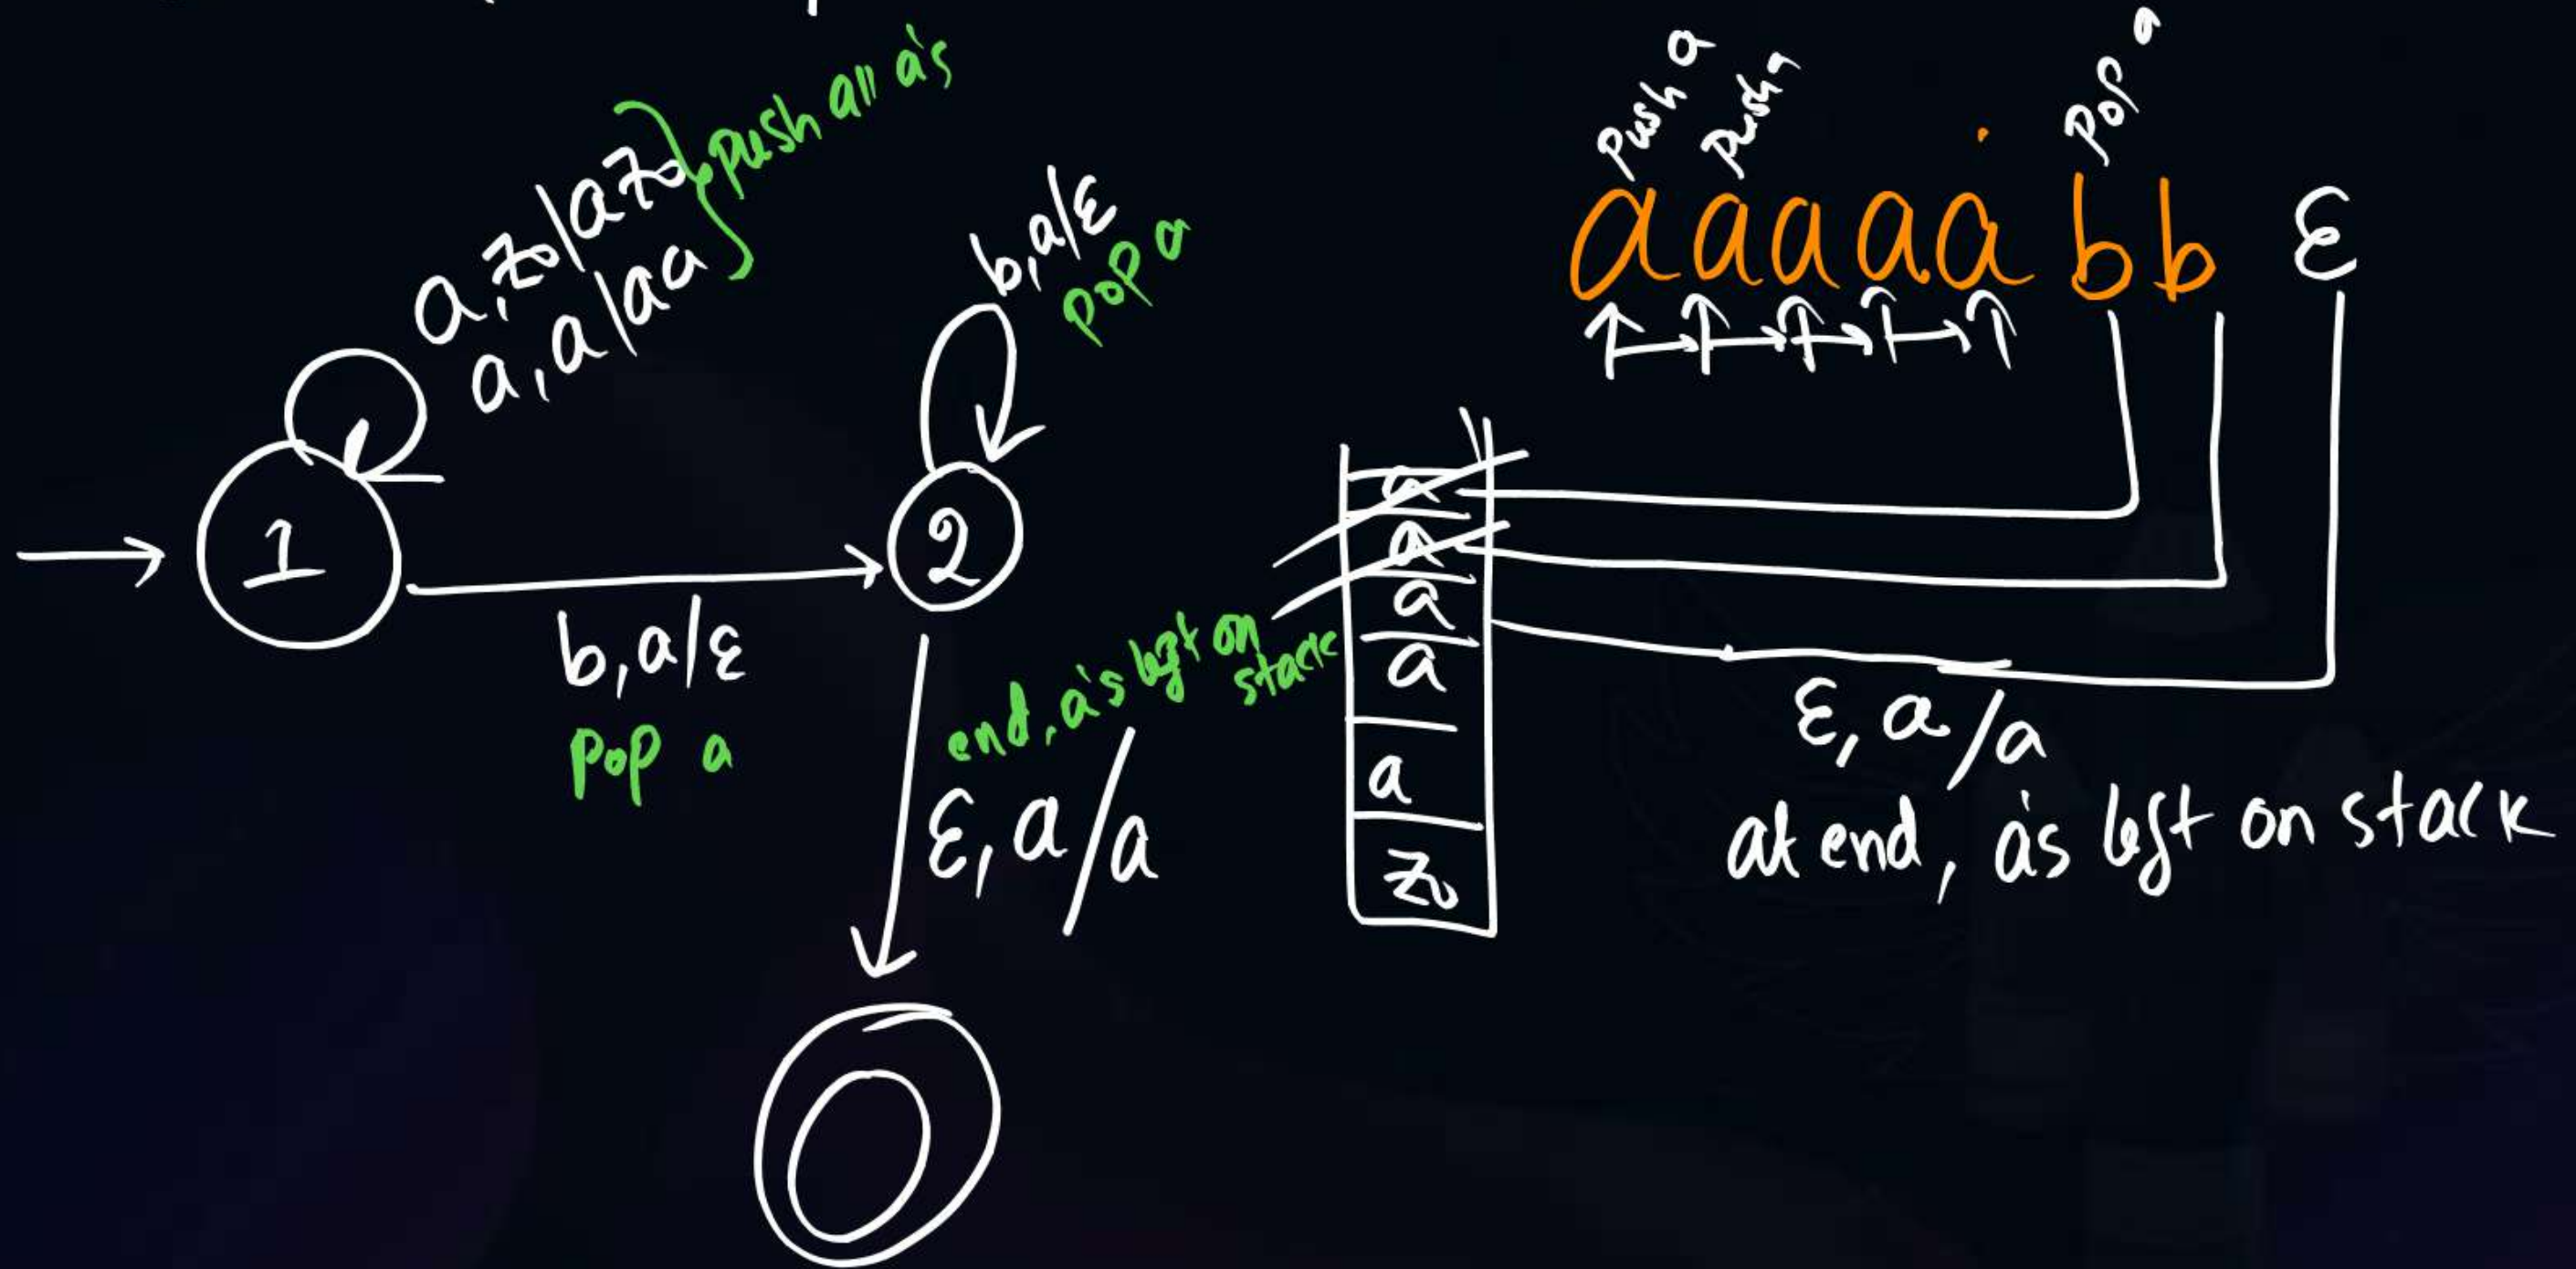 push all a's
a, z₀/az₀
a, a/aa
b, a/ε
pop a
1
2
b, a/ε
pop a
end, a's left on
stack
ε, a/a
push a
push a
pop a
aaaaabb ε
a
a
a
a
a
z₀
ε, a/a
at end, a's left on stack